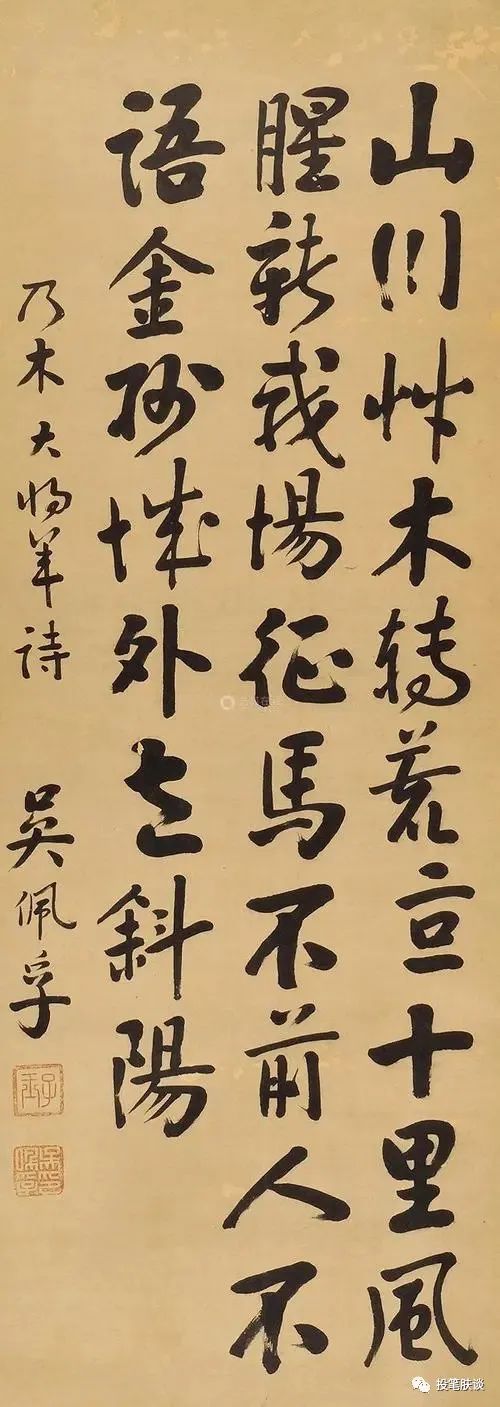 山川艸木轉荒亘十里風
腥新戰場征馬不前人不
語金州城外立斜陽
乃木大將軍詩
吳佩孚
子玉
投笔肤谈